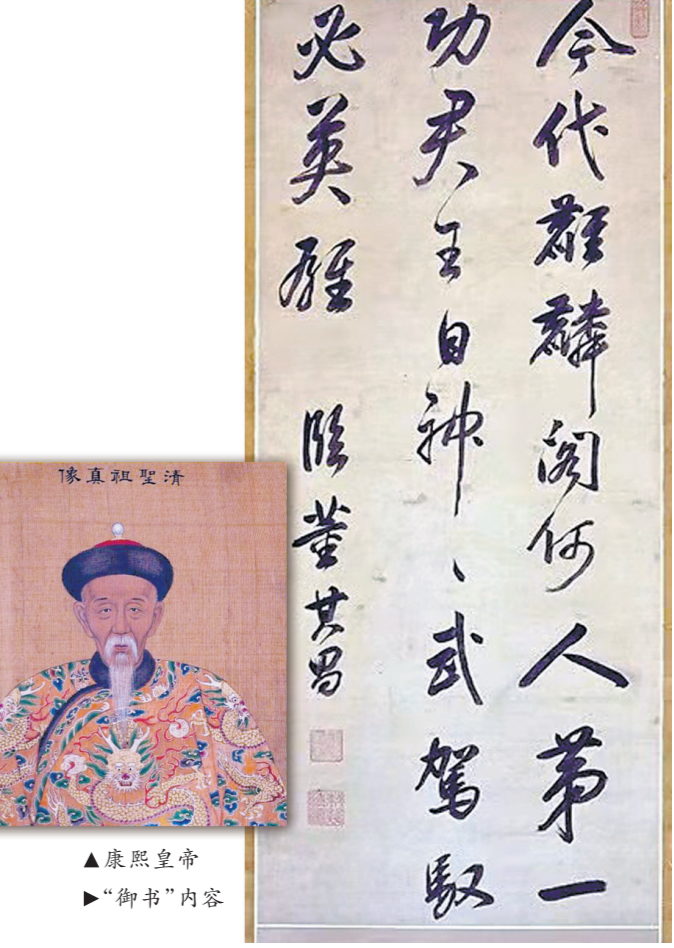 今代麒麟閣何人第一
功君王自神、武駕馭
必英雄 臨董其昌
清聖祖真像
▲康熙皇帝
►“御书”内容